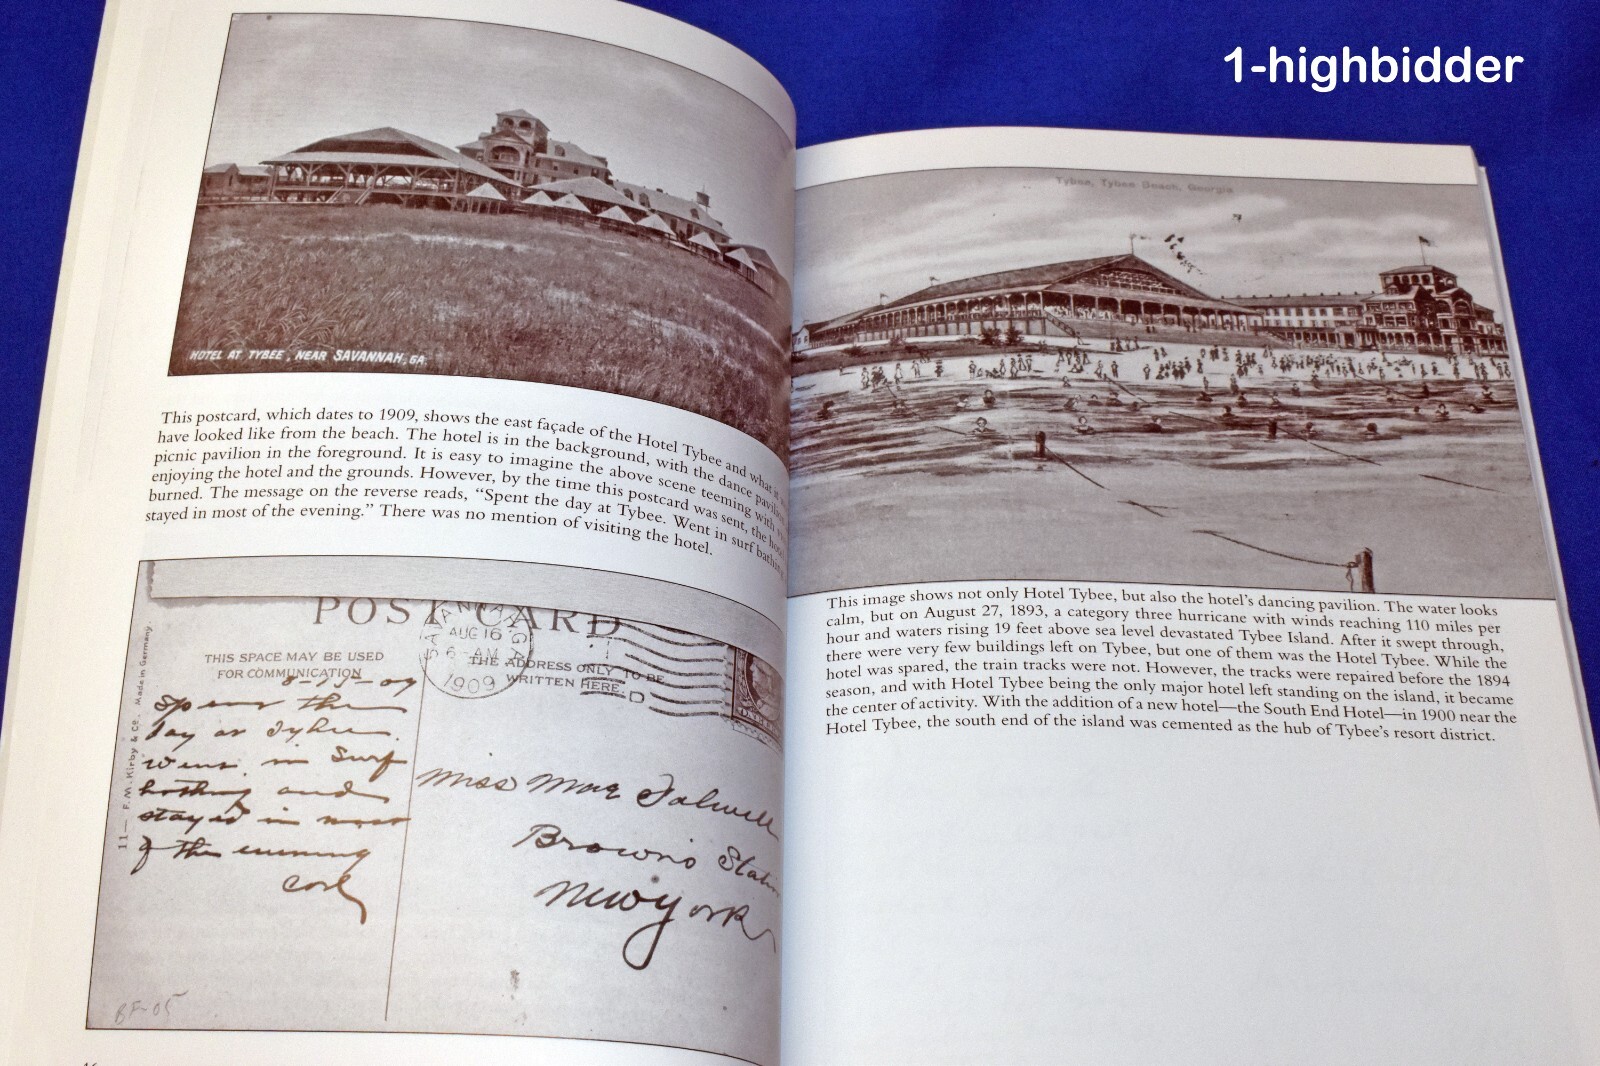 1-highbidder
HOTEL AT TYBEE, NEAR SAVANNAH, GA.
This postcard, which dates to 1909, shows the east façade of the Hotel Tybee and what it
have looked like from the beach. The hotel is in the background, with the dance pavilion
picnic pavilion in the foreground. It is easy to imagine the above scene teeming with
enjoying the hotel and the grounds. However, by the time this postcard was sent, the hotel
burned. The message on the reverse reads, “Spent the day at Tybee. Went in surf bathing
stayed in most of the evening.” There was no mention of visiting the hotel.
POST CARD
SAVANNAH, GA
AUG 16
6-AM
1909
THIS SPACE MAY BE USED
FOR COMMUNICATION
THE ADDRESS ONLY TO BE
WRITTEN HERE.
11— F.M. Kirby & Co. Made in Germany
Spent the
day at Tybee.
went in Surf
bathing and
stayed in most
of the evening
Miss Mae
Brown's Station
New York
BF-05
Tybee, Tybee Beach, Georgia
This image shows not only Hotel Tybee, but also the hotel’s dancing pavilion. The water looks
calm, but on August 27, 1893, a category three hurricane with winds reaching 110 miles per
hour and waters rising 19 feet above sea level devastated Tybee Island. After it swept through,
there were very few buildings left on Tybee, but one of them was the Hotel Tybee. While the
hotel was spared, the train tracks were not. However, the tracks were repaired before the 1894
season, and with Hotel Tybee being the only major hotel left standing on the island, it became
the center of activity. With the addition of a new hotel—the South End Hotel—in 1900 near the
Hotel Tybee, the south end of the island was cemented as the hub of Tybee’s resort district.